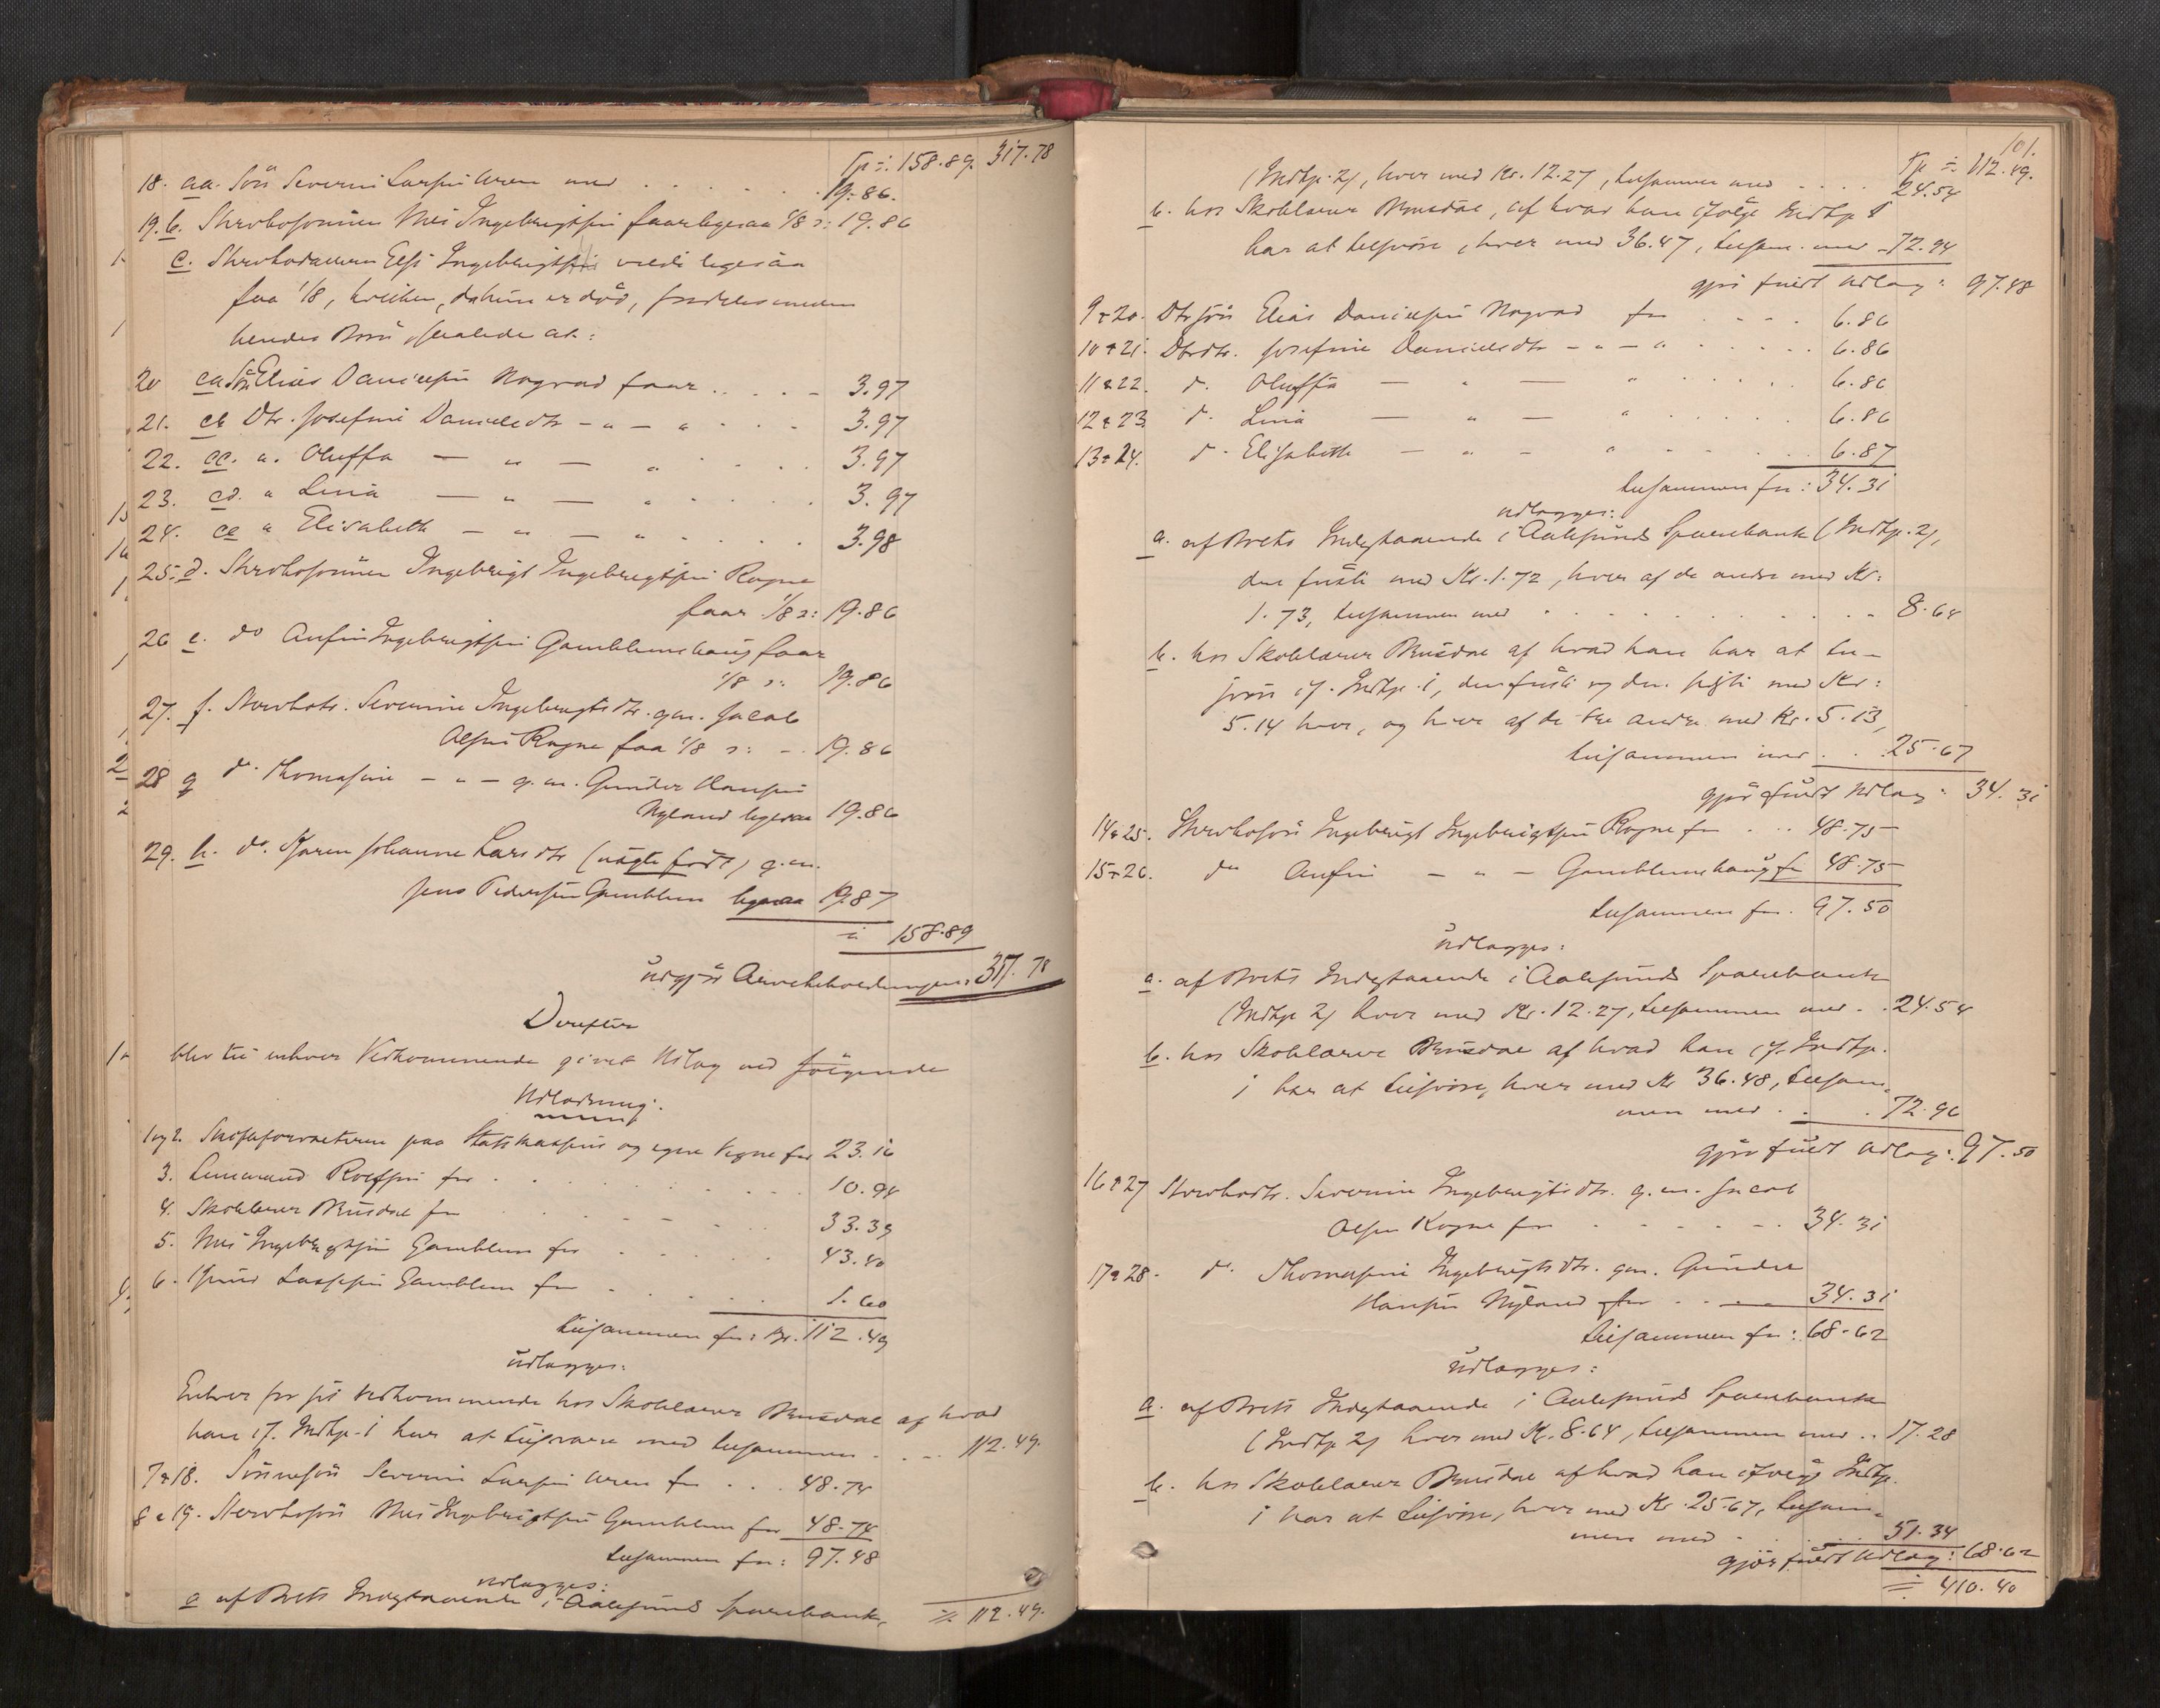 Tp ÷ 158.89. 317.78
18. aa. Søn Severin Larsen Uren med . . . . . . . 19.86.
19. b. Skrvbosønnen Nils Ingebrigtsen faar ligesaa 1/8 ɔ: 19.86
c. Elsi Ingebrigts vilde ligesaa
faa 1/8, hvilken, da hun er død, fordeles mellem
hendes Børn, saaledes at:
20 ca Søn Elias Danielsen Nogvad faar . . . . 3.97
21. cb Dtr. Josefine Danielsdtr - " - " . . . 3.97
22. cc. " Oluffa — " — " . . . . 3.97
23. cd. " Lina — " — " . . . . . 3.97
24. ce " Elisabeth — " — " . . . . . 3.98
25. d. Ingebrigt Ingebrigtsen Rogne
faar 1/8 ɔ: 19.86
26 e. do Anfin Ingebrigtsen Gamblemshaug faar
1/8 ɔ: 19.86
27. f. Severine Ingebrigtsdtr. g.m. Jacob
Olsen Rogne faa 1/8 ɔ: . . 19.86
28 g do. Thomasine - " - g.m. Gunder Hansen
Nyland ligesaa 19.86
29. h. do. Karen Johanne Larsdtr (uægte født) g.m.
Jens Pedersen Gamblem ligesaa 19.87
÷ 158.89
udgjør Arvebeholdningen: 317.78
Derefter
blev til enhver Vedkommende givet Udlæg ved følgende
Udlodning:
1 og 2. Skifteforvalteren paa Statskassens og egne Vegne for 23.16
3. Lensmand Rolfsen for . . . . . . . . 10.94
4. Skolelærer Brusdal for . . . . . . 33.39
5. Nils Ingebrigtsen Gamblem for . . . . 43.40
6. Knud Lassesen Gamblem for . . . . . 1.60
tilsammen for: Kr. 112.49
udlægges:
Enhver for sit Vedkommende hos Skolelærer Brusdal af hvad
han if. Indtp. 1 har at tilsvare med tilsammen . . . . 112.49.
7 & 18. Sønnesøn Severin Larsen Uren for . . . 48.74
8 & 19. Nils Ingebrigtsen Gamblem for 48.74
tilsammen for: 97.48
udlægges:
a af Boets Indestaaende i Aalesunds Sparebank,
÷ 112.49.
101.
Tp ÷ 112.49.
(Indtp. 2), hver med Kr. 12.27, tilsammen med . . . . 24.54
b. hos Skolelærer Brusdal, af hvad han ifølge Indtp 1
har at tilsvare, hver med 36.47, tilsam. med - 72.94
gjør fuldt Udlæg: 97.48
9 & 20. Dtrsøn Elias Danielsen Nogvad for . . . . 6.86
10 & 21. Dtrdtr. Josefine Danielsdtr - " - " . . . . . 6.86
11 & 22. do. Oluffa — " — " . . . . . 6.86
12 & 23. do. Lina — " " . . . . . 6.86
13 & 24. do. Elisabeth — " - " . . . . . 6.87
tilsammen for: 34.31
udlægges:
a. af Boets Indestaaende i Aalesunds Sparebank (Indtp. 2),
den første med Kr. 1.72, hver af de andre med Kr:
1.73, tilsammen med . . . . . . . . . . . 8.64
b. hos Skolelærer Brusdal af hvad han har at til-
svare if. Indtp. 1, den første og den sidste med Kr:
5.14 hver, og hver af de tre andre med Kr. 5.13,
tilsammen med . . . 25.67
gjør fuldt Udlæg: 34.31
14 & 25. Ingebrigt Ingebrigtsen Rogne for . . . 48.75
15 & 26. do Anfin - " - Gamblemshaug for 48.75
tilsammen for. 97.50
udlægges:
a. af Boets Indestaaende i Aalesunds Sparebank
(Indtp 2) hver med Kr. 12.27, tilsammen med . . 24.54
b. hos Skolelærer Brusdal af hvad han if. Indtp.
1 har at tilsvare, hver med Kr 36.48, tilsam-
men med . . . 72.96
gjør fuldt Udlæg: 97.50
16 & 27 Severine Ingebrigtsdtr. g.m. Jacob
Olsen Rogne for . . . . . . . 34.31
17 & 28. do. Thomasine Ingebrigtsdtr. gm. Gunder
Hansen Nyland for . . . . 34.31
tilsammen for: 68.62
udlægges:
a. af Boets Indestaaende i Aalesunds Sparebank
(Indtp 2) hver med Kr. 8.64, tilsammen med . . 17.28
b. hos Skolelærer Brusdal af hvad han ifølge Indtp.
1 har at tilsvare, hver med Kr. 25.67, tilsam-
men med . . . . . 51.34
gjør fuldt Udlæg: 68.62
÷ 410.40